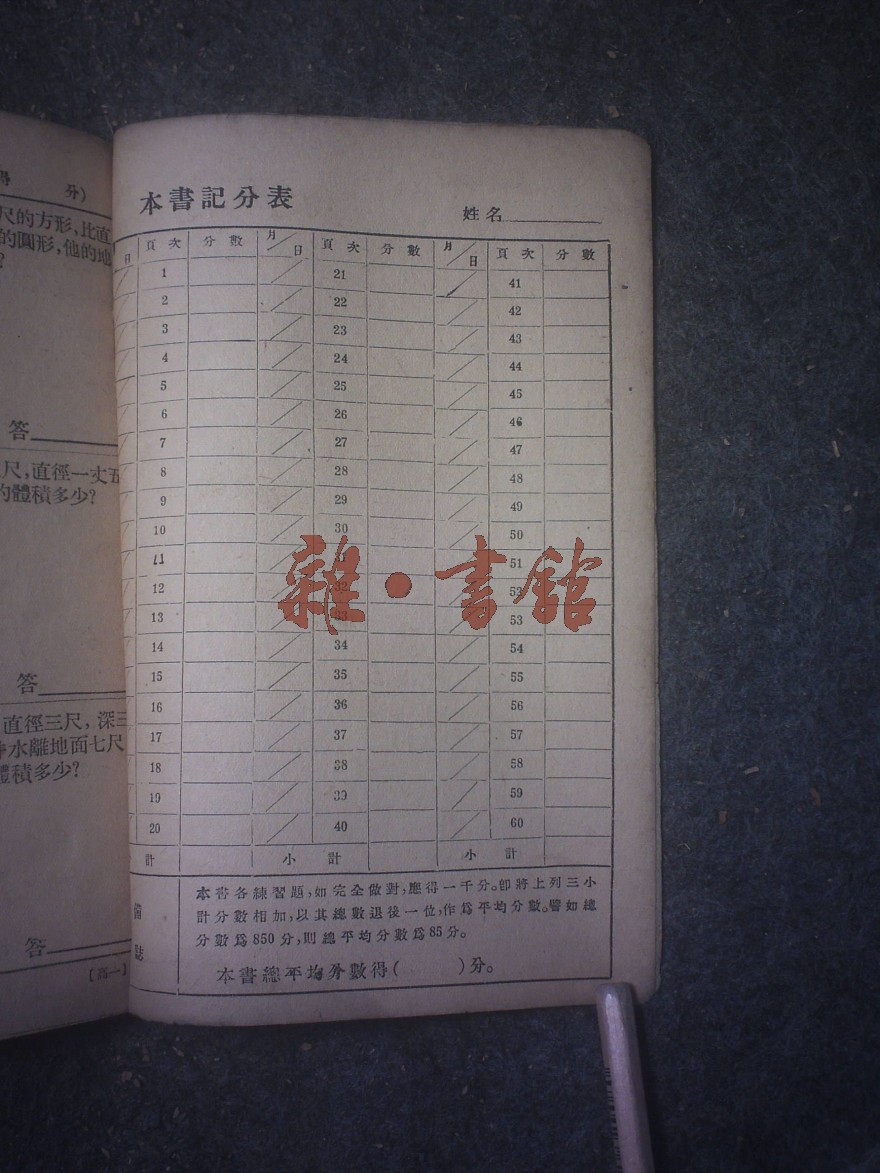 分)
尺的方形，比直
的圓形，他的地
?
答
尺，直徑一丈五
的體積多少?
答
直徑三尺，深三
水離地面七尺
體積多少?
答
〔高一〕
本書記分表
姓名
日 頁次 分數 月/日 頁次 分數 月/日 頁次 分數
1 21 41
2 22 42
3 23 43
4 24 44
5 25 45
6 26 46
7 27 47
8 28 48
9 29 49
10 30 50
11 31 51
12 32 52
13 33 53
14 34 54
15 35 55
16 36 56
17 37 57
18 38 58
19 39 59
20 40 60
計 小計 小計
雜·書館
備
誌
本書各練習題，如完全做對，應得一千分。卽將上列三小
計分數相加，以其總數退後一位，作爲平均分數。譬如總
分數爲850分，則總平均分數爲85分。
本書總平均分數得( )分。